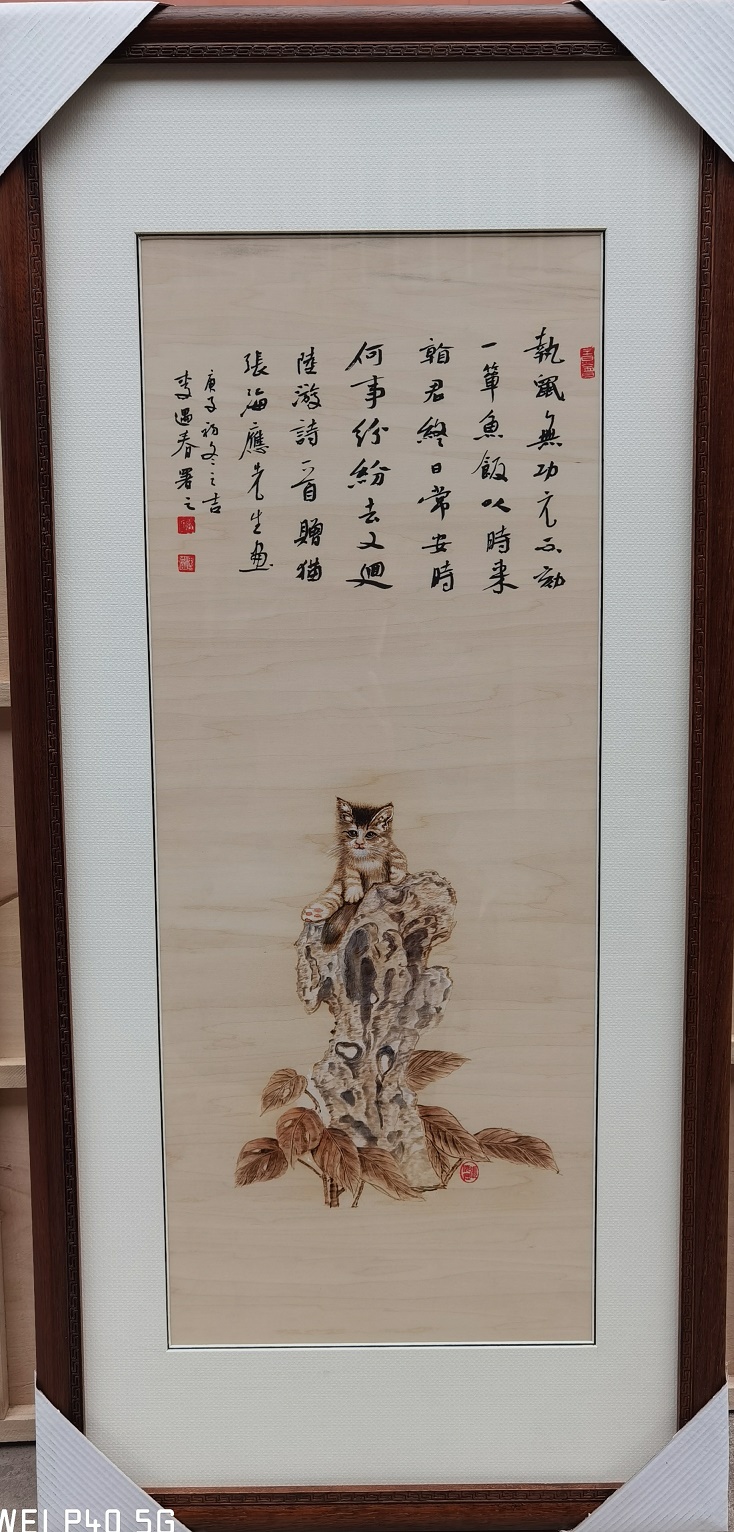 執鼠無功元不劾
一簞魚飯以時来
君終日常安時
何事紛紛去又迴
陸游詩一首贈猫
張海應先生畫
庚子初冬之吉
李遇春署之
WEI P40 5G